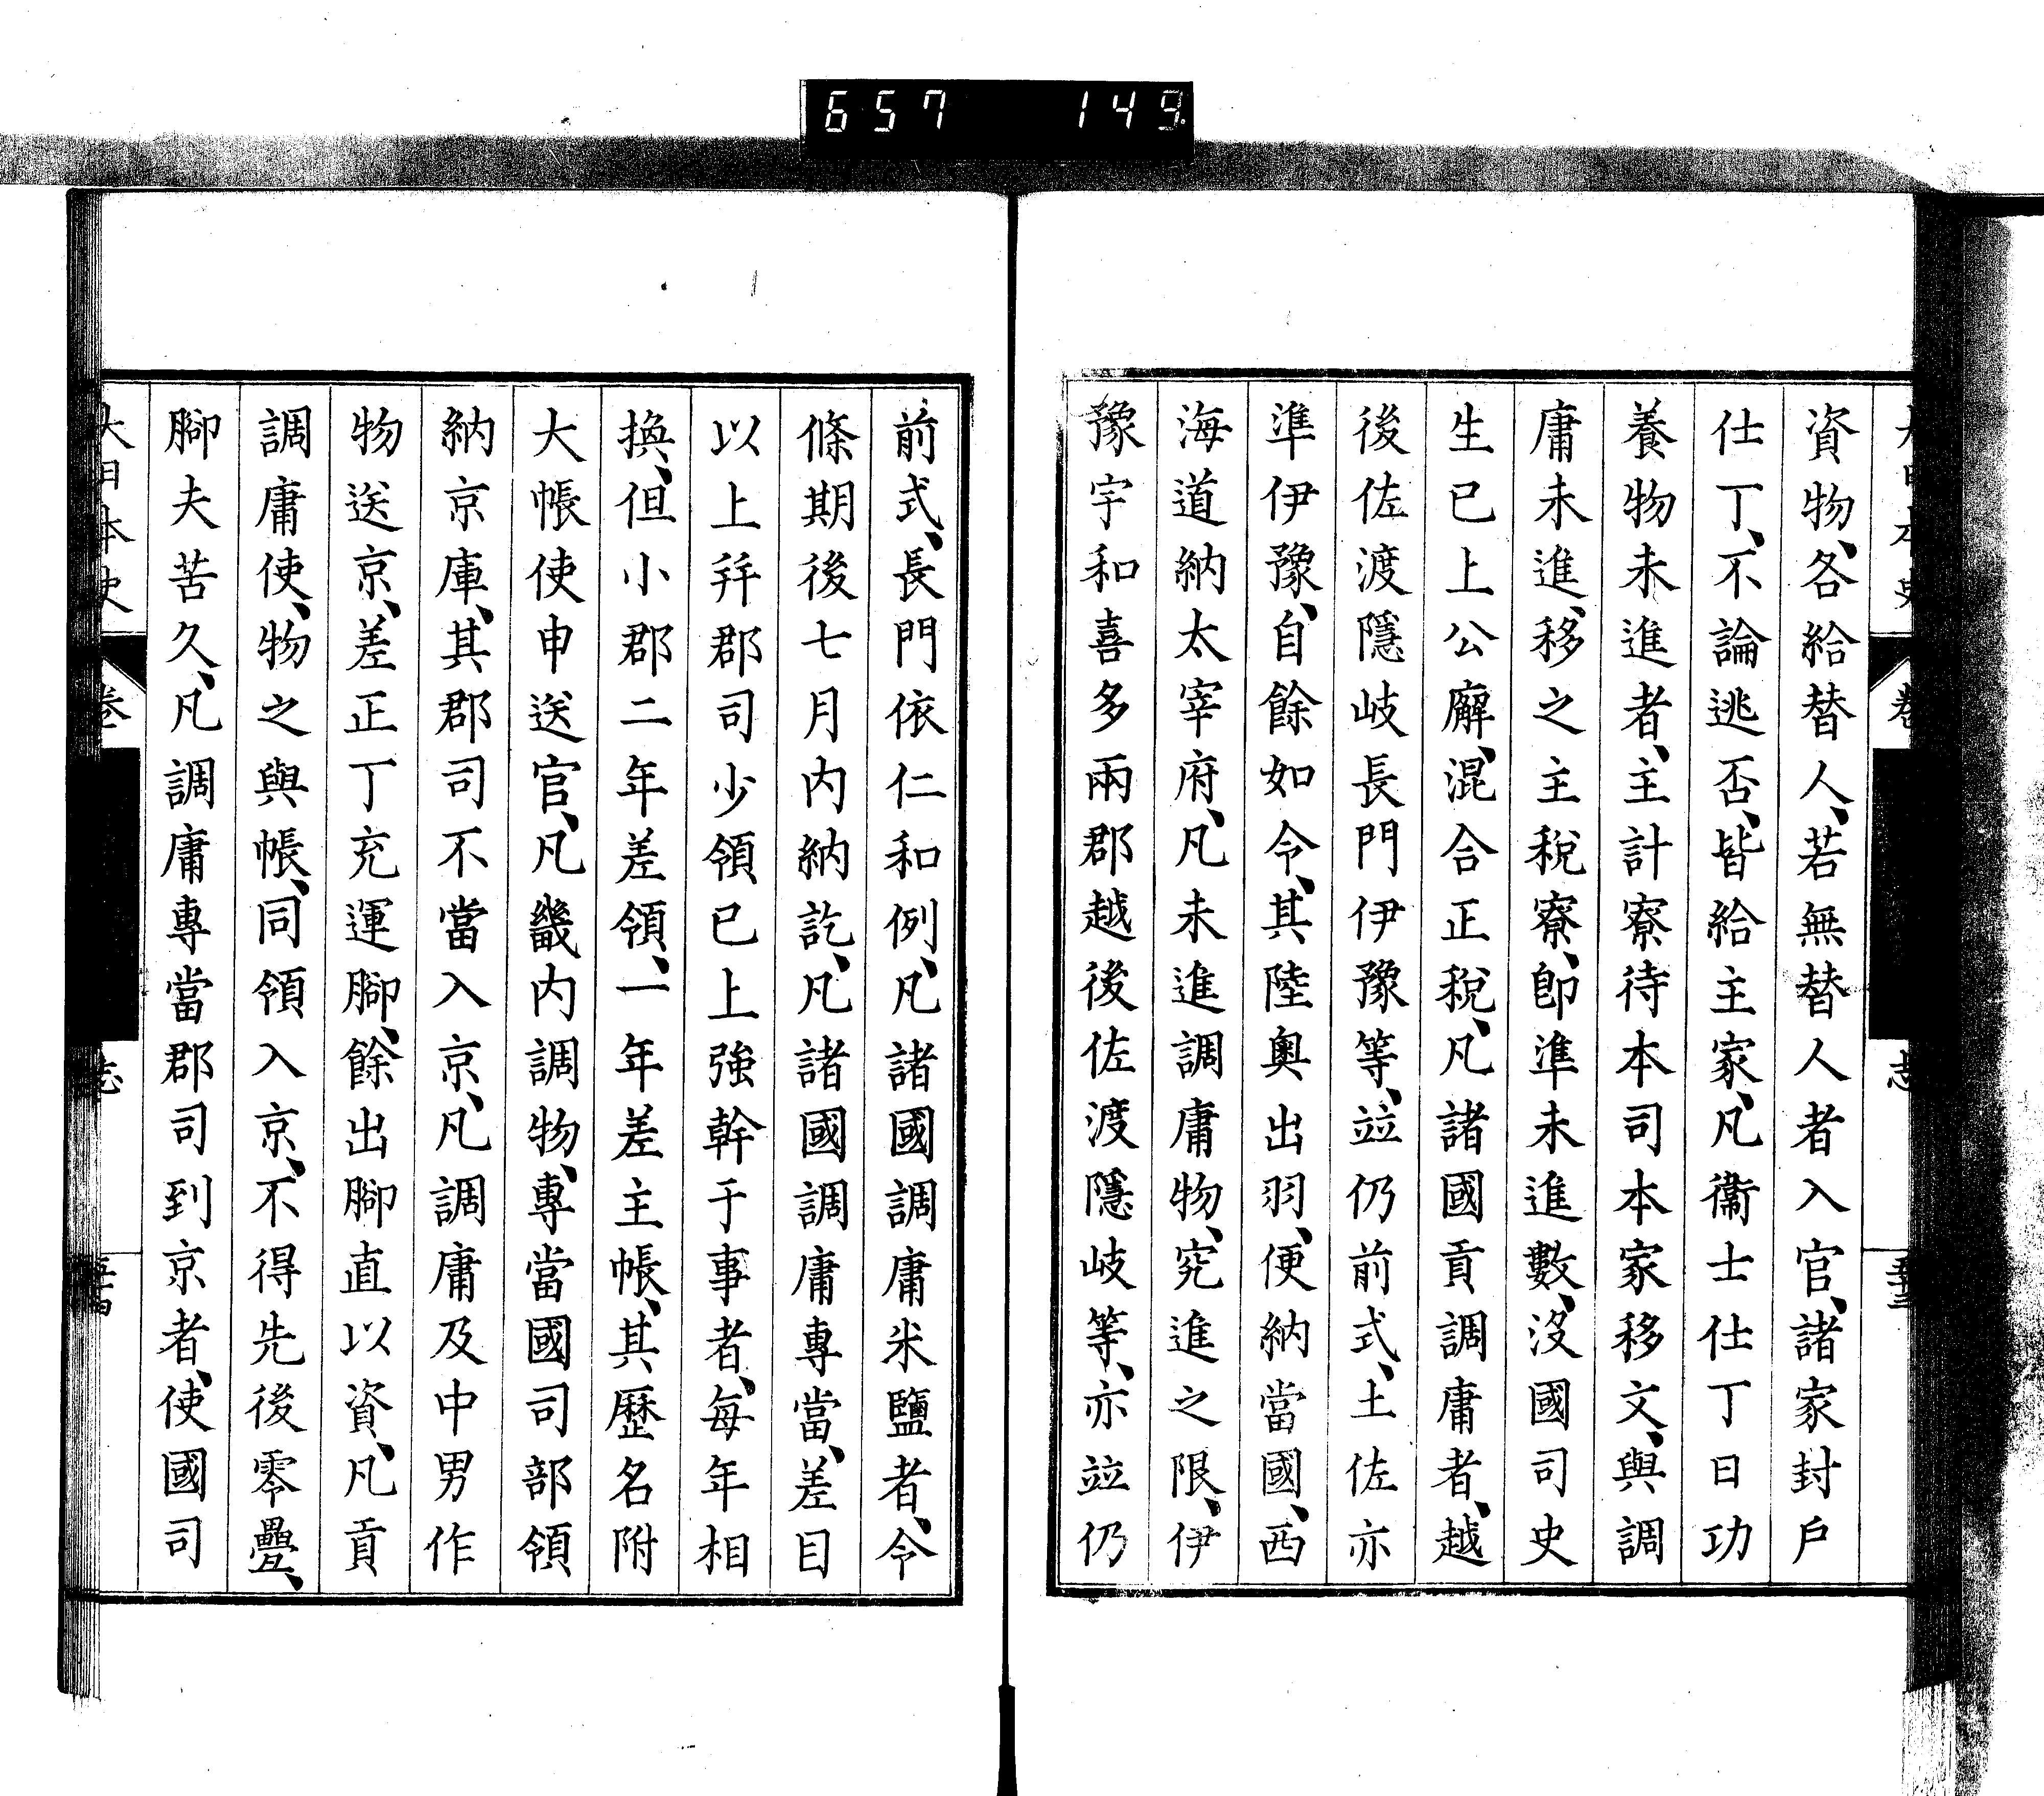 657 149
資物、各給替人、若無替人者入官、諸家封戶
仕丁、不論逃否、皆給主家、凡衞士仕丁日功
養物未進者、主計寮待本司本家移文、與調
庸未進、移之主稅寮、卽準未進數、沒國司史
生已上公廨、混合正稅、凡諸國貢調庸者、越
後佐渡隱岐長門伊豫等、竝仍前式、土佐亦
準伊豫、自餘如令、其陸奧出羽、便納當國、西
海道納太宰府、凡未進調庸物、究進之限、伊
豫宇和喜多兩郡越後佐渡隱岐等、亦竝仍
前式、長門依仁和例、凡諸國調庸米鹽者、令
條期後七月内納訖、凡諸國調庸專當、差目
以上幷郡司少領已上強幹于事者、每年相
換、但小郡二年差領、一年差主帳、其歷名附
大帳使申送官、凡畿内調物、專當國司部領
納京庫、其郡司不當入京、凡調庸及中男作
物送京、差正丁充運腳、餘出腳直以資、凡貢
調庸使、物之與帳、同領入京、不得先後零疊、
腳夫苦久、凡調庸專當郡司到京者、使國司
大日本史 卷 志